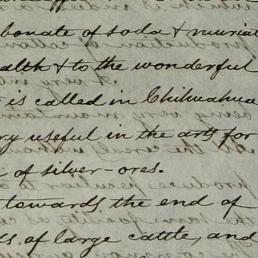 bonate of soda & muriat
ealth & to the wonderful
is called in Chihuahua
ry useful in the arts for
of silver-ores.
towards the end of
of large cattle, and